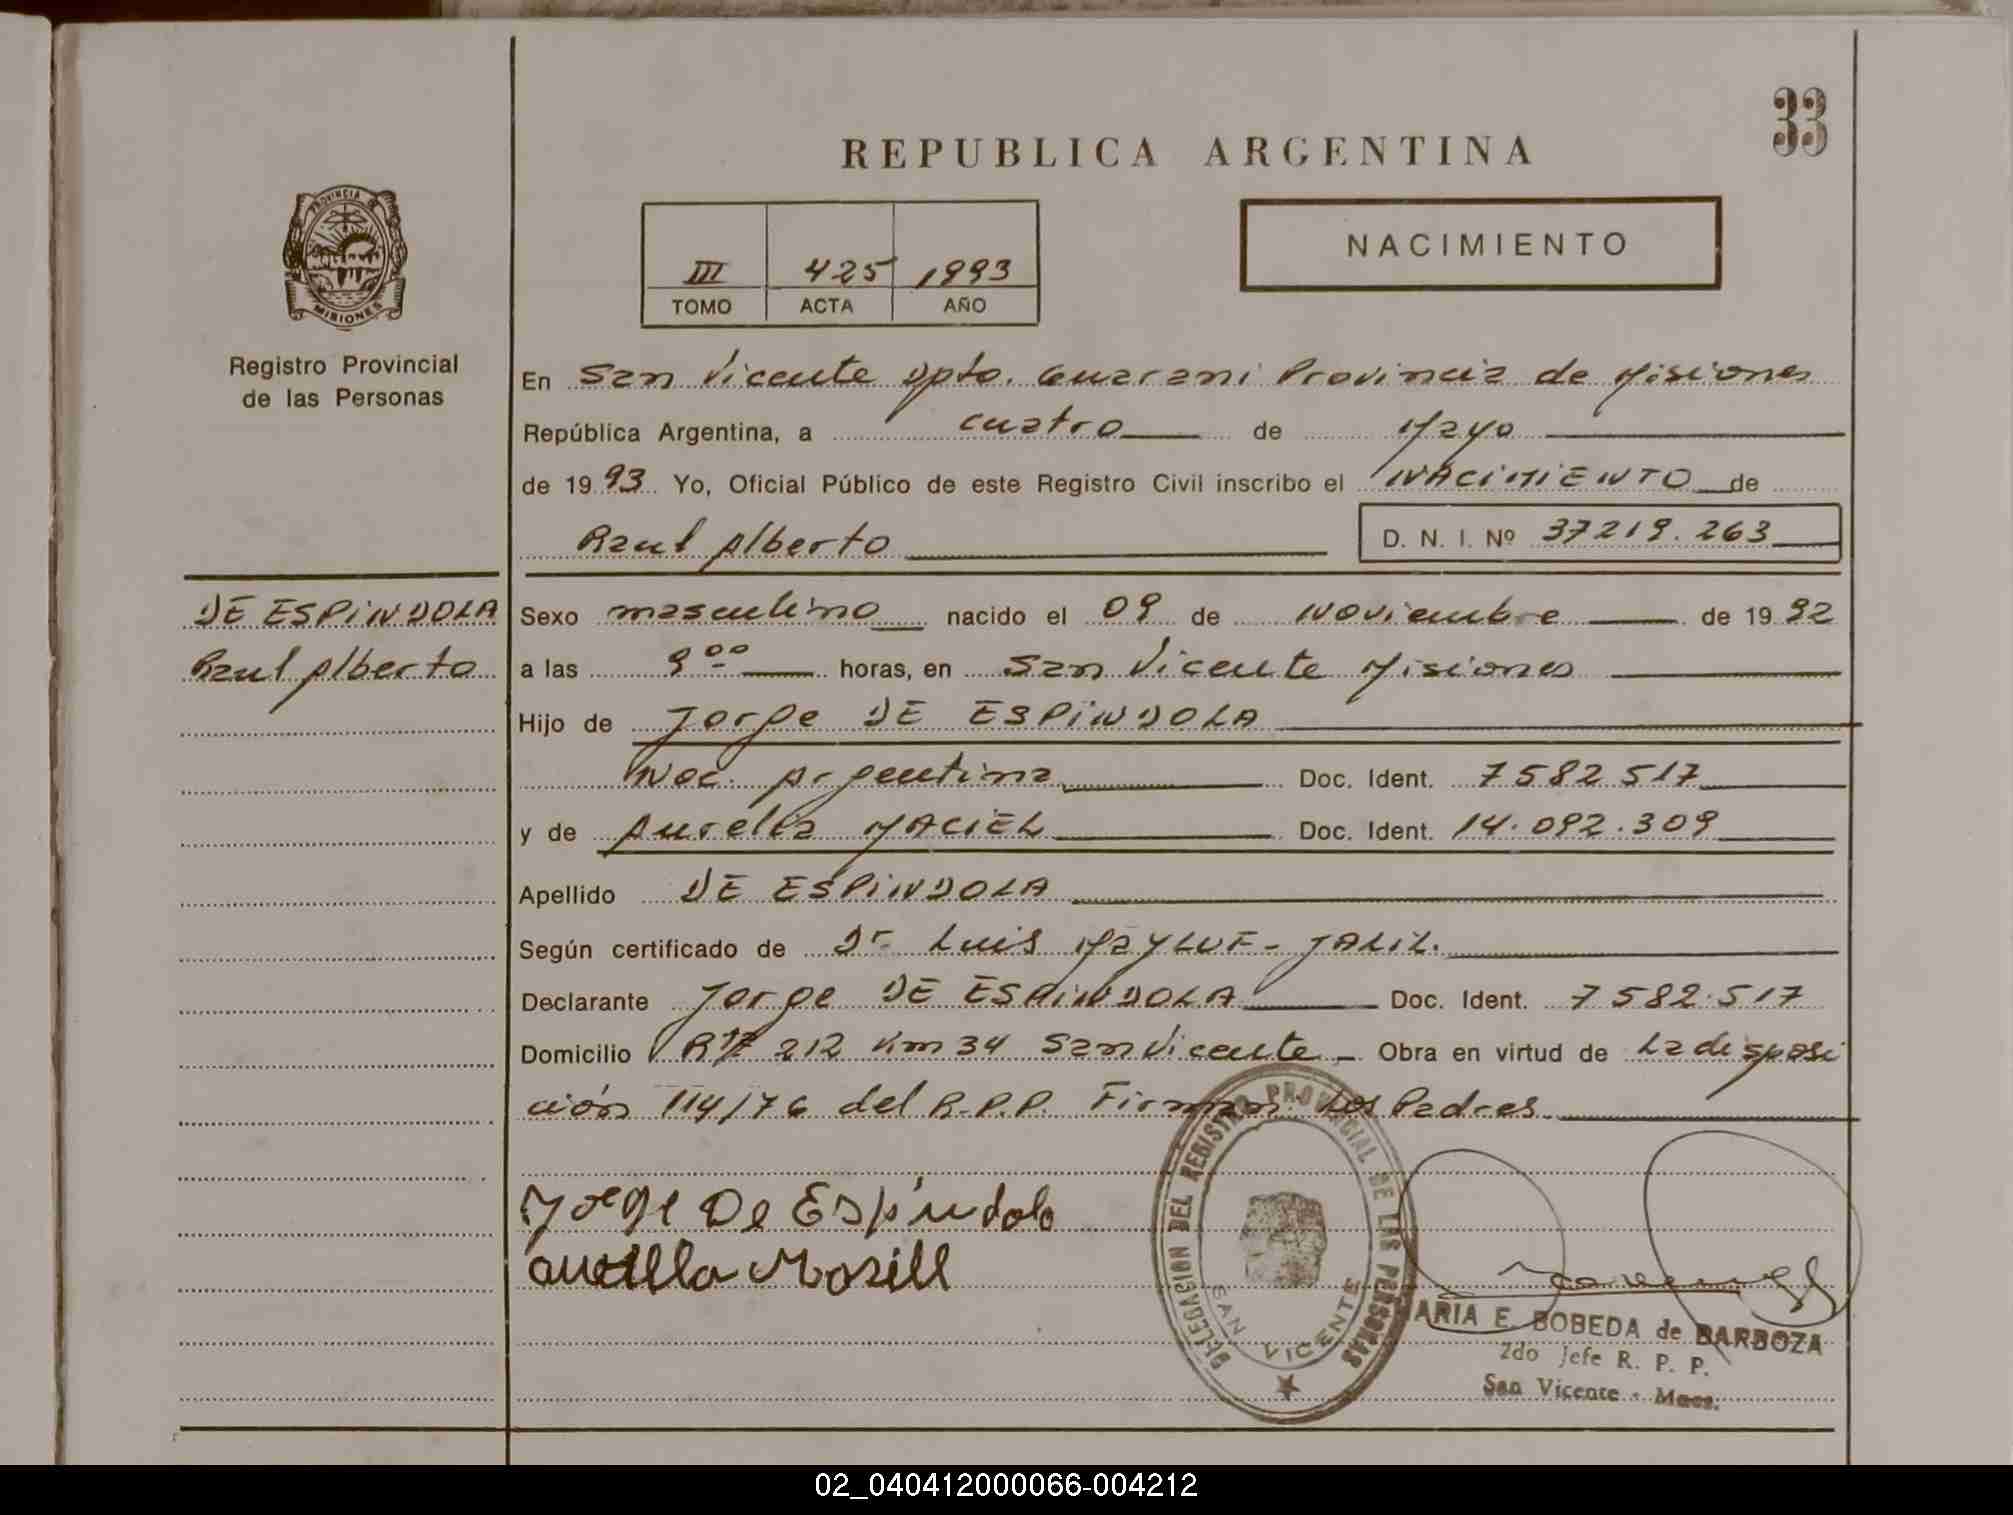 33
REPUBLICA ARGENTINA
PROVINCIA D
MISIONES
Registro Provincial
de las Personas
III 425 1993
TOMO ACTA AÑO
NACIMIENTO
En San Vicente Dpto. Guarani Provincia de Misiones
República Argentina, a cuatro de Mayo
de 1993. Yo, Oficial Público de este Registro Civil inscribo el NACIMIENTO de
Raul Alberto D. N. I. Nº 37219.263
DE ESPINDOLA
Raul Alberto
Sexo masculino nacido el 09 de Noviembre de 1992
a las 9 00 horas, en San Vicente Misiones
Hijo de Jorge DE ESPINDOLA
Nac. Argentina Doc. Ident. 7582517
y de Aurelia MACIEL Doc. Ident. 14.092.309
Apellido DE ESPINDOLA
Según certificado de Dr. Luis JALIL.
Declarante Jorge DE ESPINDOLA Doc. Ident. 7582.517
Domicilio 212 Km 34 San Vicente Obra en virtud de La disposi
ción 114/76 del R.P.P. Firman Los Padres
Jorge De Espíndola
DELEGACION DEL REGISTRO PROVINCIAL DE LAS PERSONAS
SAN VICENTE
ARIA E. BOBEDA de BARBOZA
2do Jefe R. P. P.
San Vicente - Mnes.
02_040412000066-004212